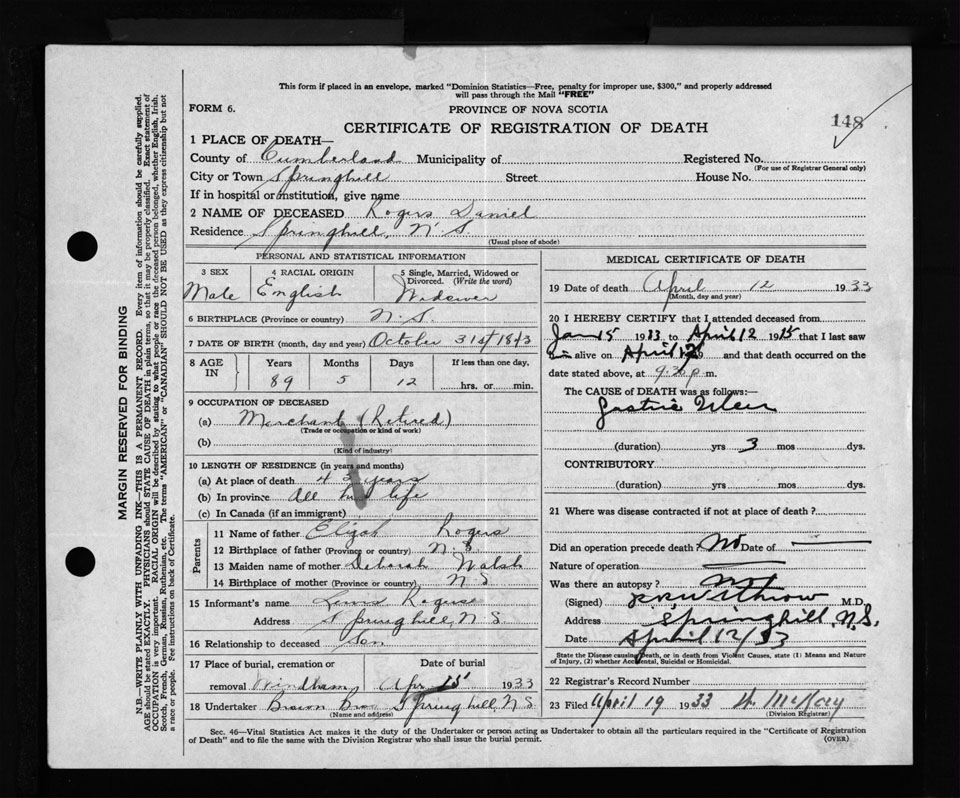 This form if placed in an envelope, marked "Dominion Statistics—Free, penalty for improper use, $300," and properly addressed
will pass through the Mail "FREE"
FORM 6.
PROVINCE OF NOVA SCOTIA
148
CERTIFICATE OF REGISTRATION OF DEATH
MARGIN RESERVED FOR BINDING
N.B.—WRITE PLAINLY WITH UNFADING INK—THIS IS A PERMANENT RECORD. Every item of information should be carefully supplied.
AGE should be stated EXACTLY. PHYSICIANS should STATE CAUSE OF DEATH in plain terms, so that it may be properly classified. Exact statement of
OCCUPATION is very important. RACIAL ORIGIN will be described by stating to what people or race the deceased person belonged, whether English, Irish,
Scotch, French, German, Russian, Ruthenian, etc. The terms "AMERICAN" or "CANADIAN" SHOULD NOT BE USED as they express citizenship but not
a race or people. Fee instructions on back of Certificate.
1 PLACE OF DEATH—
County of Cumberland Municipality of Registered No.
(For use of Registrar General only)
City or Town Springhill Street House No.
If in hospital or institution, give name
2 NAME OF DECEASED Rogers Daniel
Residence Springhill, N.S.
(Usual place of abode)
PERSONAL AND STATISTICAL INFORMATION
3 SEX 4 RACIAL ORIGIN 5 Single, Married, Widowed or
Divorced. (Write the word)
Male English Widower
6 BIRTHPLACE (Province or country) N.S.
7 DATE OF BIRTH (month, day and year) October 31st 1843
8 AGE IN Years Months Days If less than one day,
89 5 12 hrs. or min.
9 OCCUPATION OF DECEASED
(a) Merchant (Retired)
(Trade or occupation or kind of work)
(b)
(Kind of industry)
10 LENGTH OF RESIDENCE (in years and months)
(a) At place of death 42 years
(b) In province All his life
(c) In Canada (if an immigrant)
Parents
11 Name of father Elijah Rogers
12 Birthplace of father (Province or country) N.S.
13 Maiden name of mother Deborah Walsh
14 Birthplace of mother (Province or country) N.S.
15 Informant's name Rogers
Address Springhill, N.S.
16 Relationship to deceased Son
17 Place of burial, cremation or Date of burial
removal Windham Apr 15 1933
18 Undertaker Brown Bros Springhill, N.S.
(Name and address)
MEDICAL CERTIFICATE OF DEATH
19 Date of death April 12 1933
(Month, day and year)
20 I HEREBY CERTIFY that I attended deceased from
Jan 15 1933 to April 12 19 that I last saw
him alive on April 12 and that death occurred on
date stated above, at 9.30 p.m.
The CAUSE OF DEATH was as follows:—
Gastric Ulcer
(duration) yrs 3 mos dys.
CONTRIBUTORY
(duration) yrs mos dys.
21 Where was disease contracted if not at place of death?
Did an operation precede death? No Date of
Nature of operation
Was there an autopsy? No
(Signed) Withrow M.D.
Address Springhill, N.S.
Date April 12/33
State the Disease causing Death, or in death from Violent Causes, state (1) Means and Nature
of Injury, (2) whether Accidental, Suicidal or Homicidal.
22 Registrar's Record Number
23 Filed April 19 1933 McKay
(Division Registrar)
Sec. 46—Vital Statistics Act makes it the duty of the Undertaker or person acting as Undertaker to obtain all the particulars required in the "Certificate of Registration
of Death" and to file the same with the Division Registrar who shall issue the burial permit.
(OVER)